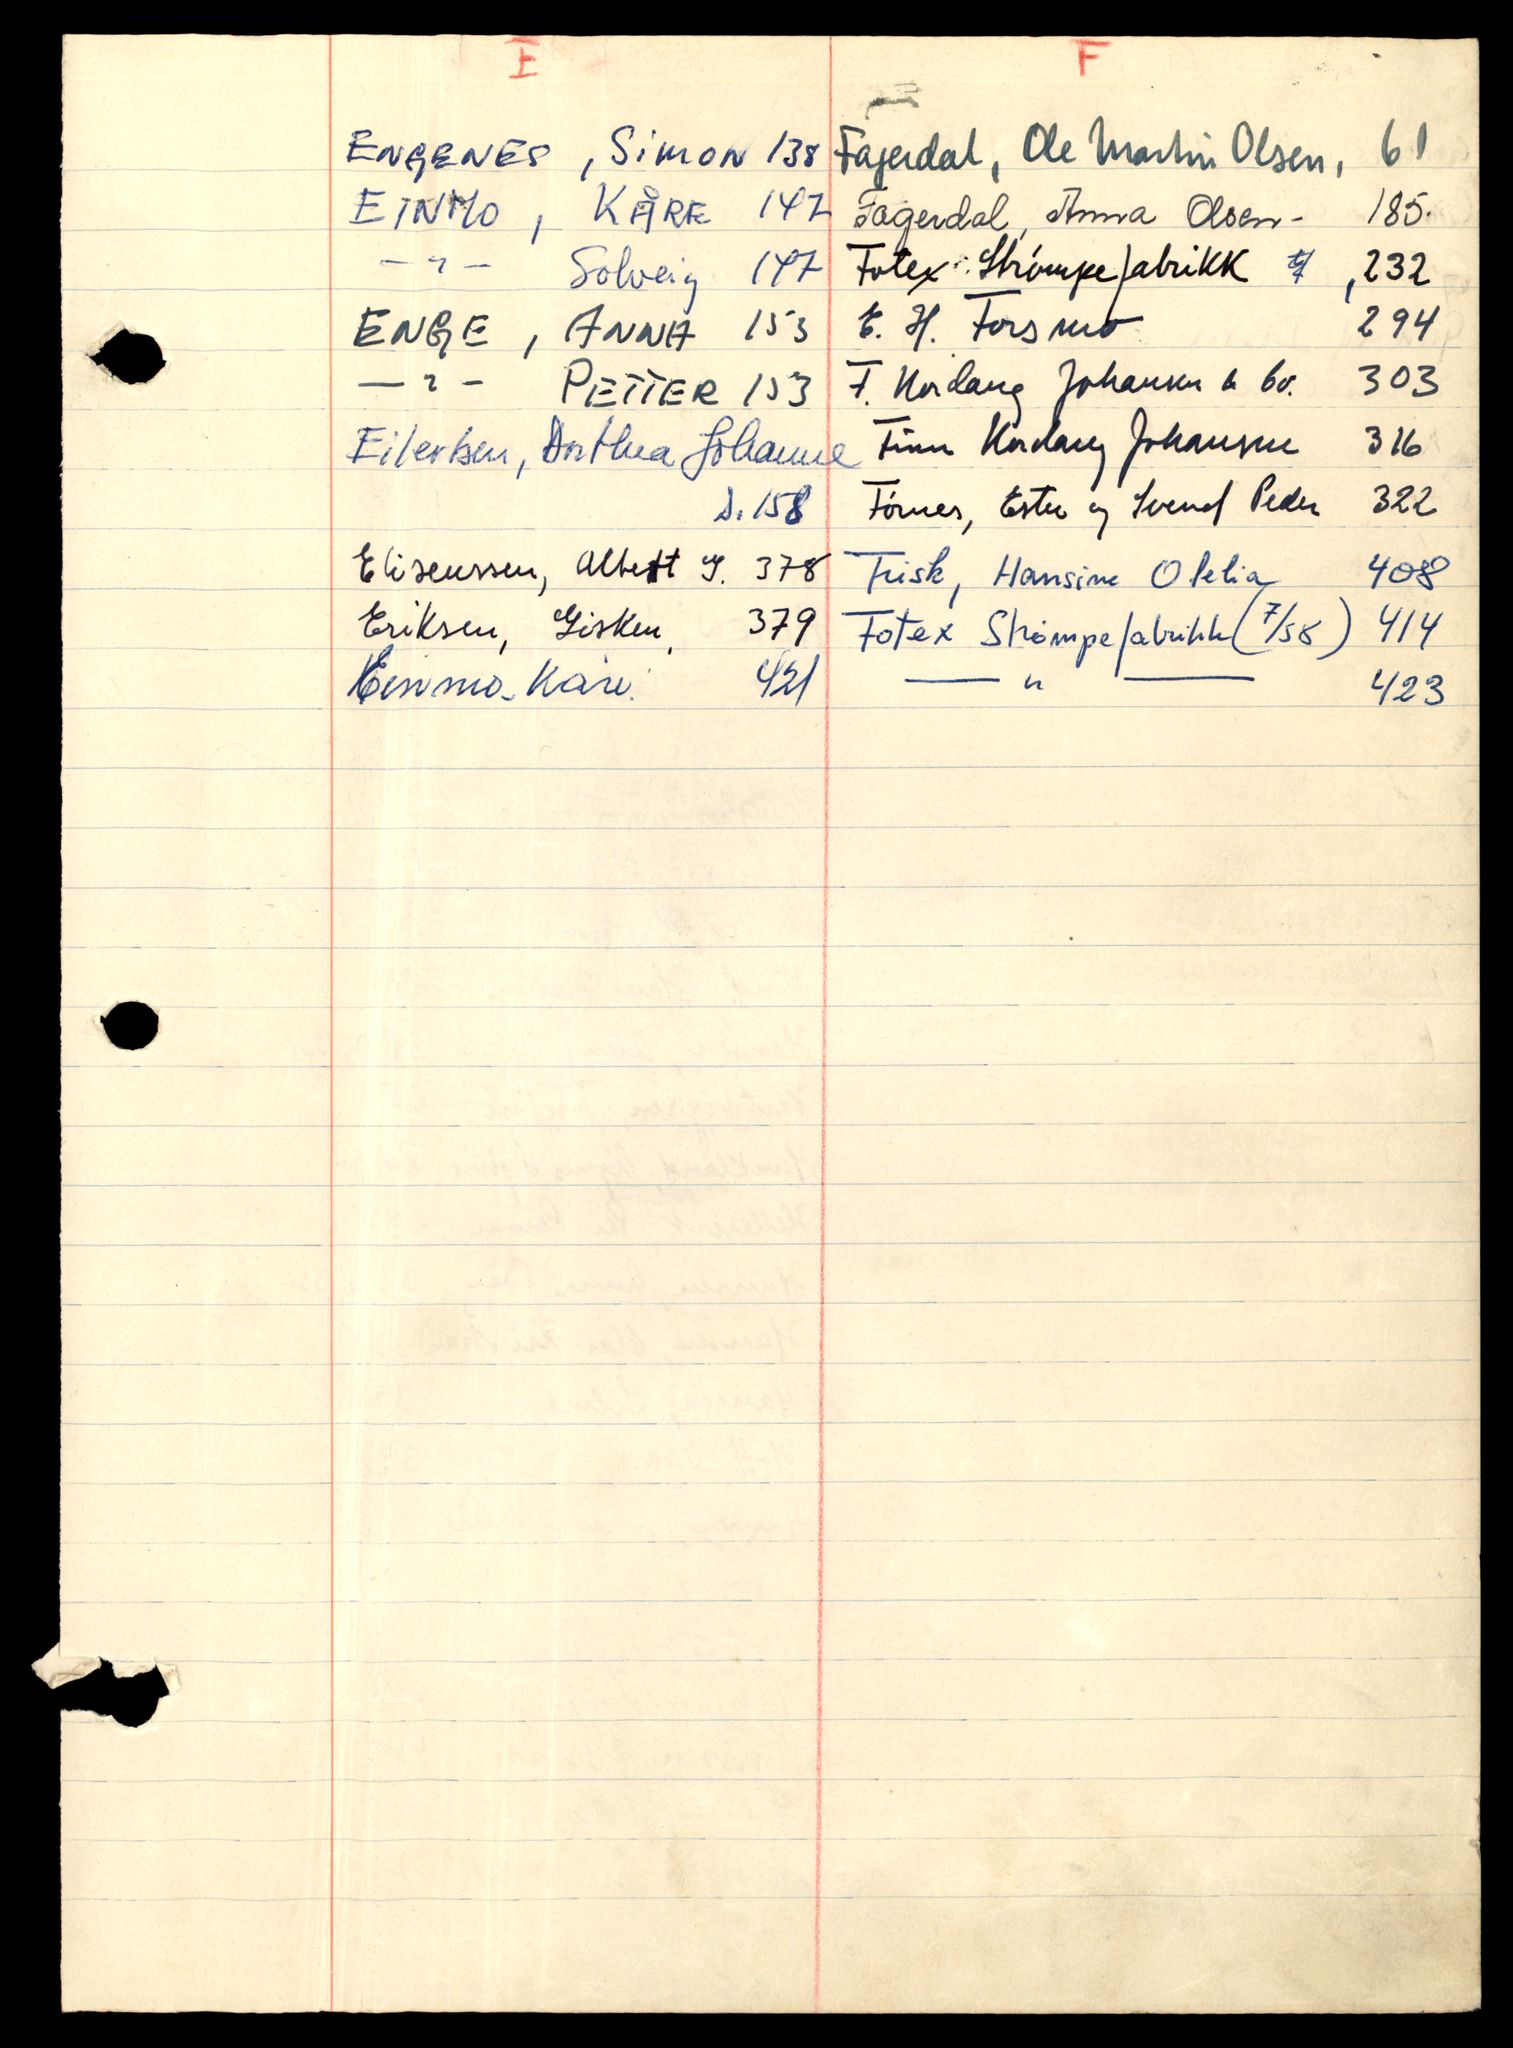 E
ENGENES, Simon 138
EINMO, KÅRE 147
— " — Solveig 147
ENGE, ANNA 153
— " — PETTER 153
Eilertsen, Dorthea Johanne
s. 158
Eliseussen, Albert J. 378
Eriksen, Gisken, 379
Einmo Kåre 421
F
Fagerdal, Ole Martin Olsen, 61
Fagerdal, Anna Olsen - 185.
Fotex Strømpefabrikk , 232
E. H. Forsmo 294
F. Kordang Johansen & Co. 303
Finn Kordang Johansen 316
Førnes, Ester og Svend Peder 322
Frisk, Hansine Ofelia 408
Fotex Strømpefabrikk (7/58) 414
— " — 423